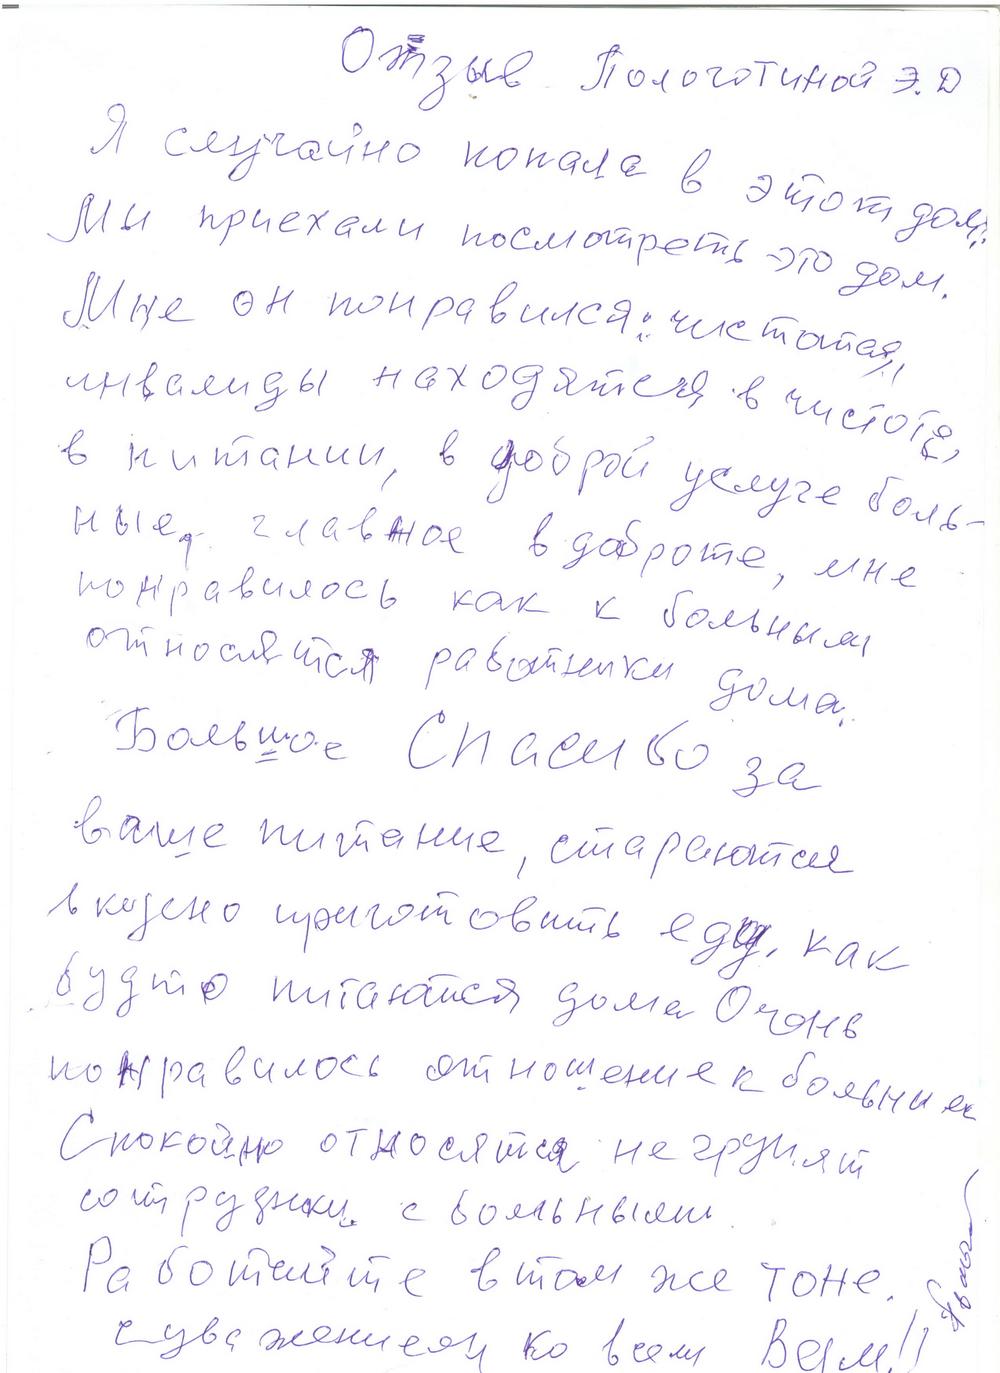 Отзыв Пологотиной Э.Д
Я случайно попала в этот дом.
Мы приехали посмотреть это дом.
Мне он понравился: чистота,
инвалиды находятся в чистоте,
в питании, в доброй услуге боль-
ные, главное в доброте, мне
понравилось как к больным
относятся работники дома.
Большое Спасибо за
ваше питание, стараются
вкусно приготовить еду, как
будто питаются дома Очень
понравилось отношение к больных
Спокойно относятся не грубият
сотрудники с больными
Работайте в том же тоне.
с уважением ко всем Вам!!